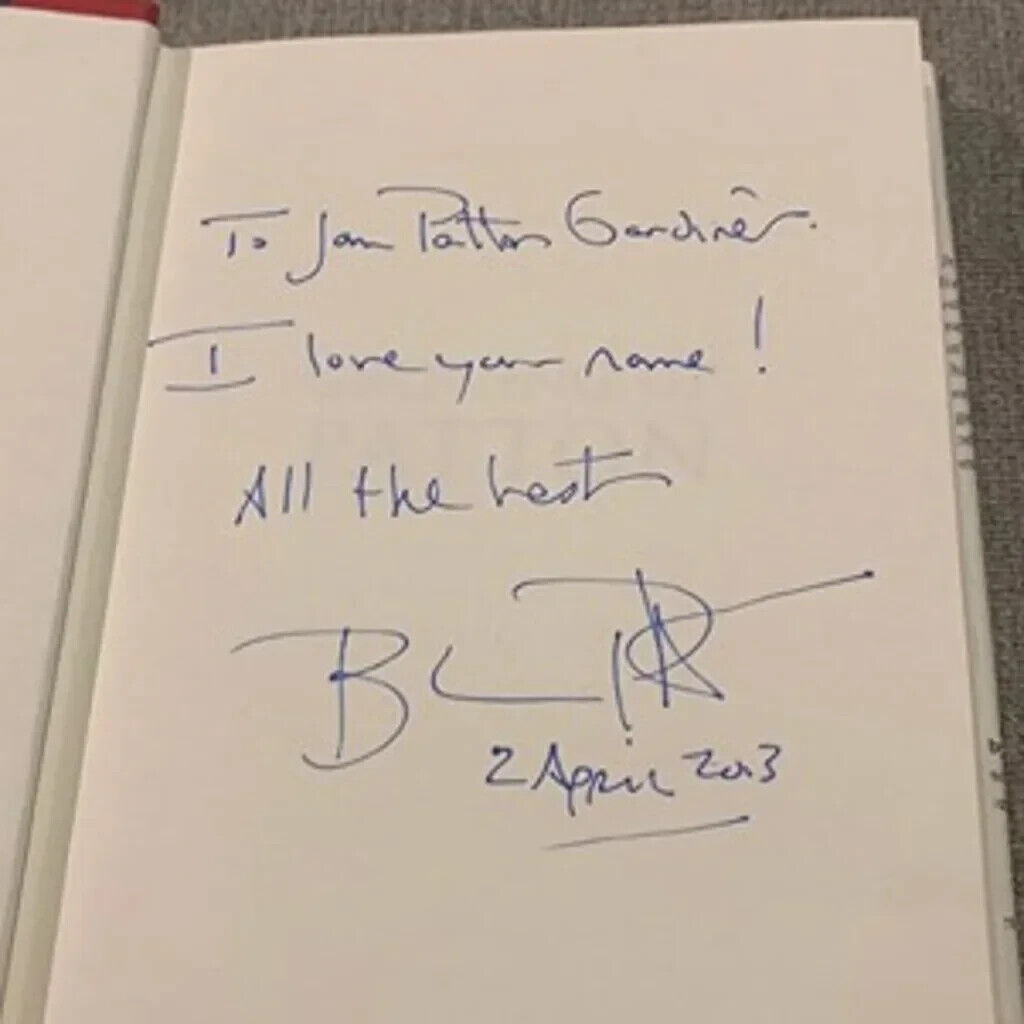 To Jan Patton Gardiner.
I love your name!
All the best
2 April 2013